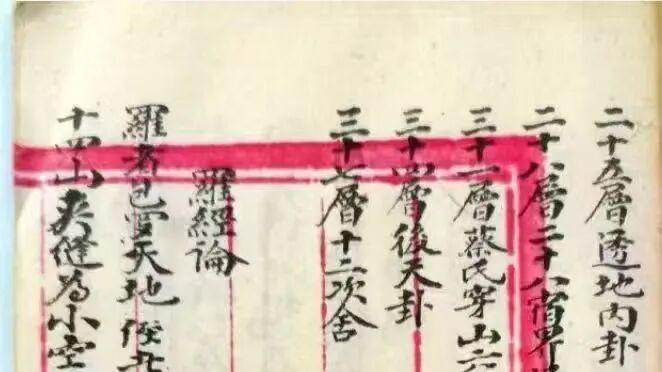 二十五層透地內卦
二十八層二十八宿界
三十一層蔡氏穿山六
三十四層後天卦
三十七層十二次舍
羅經論
羅者包羅天地經
十四山夾縫為小空